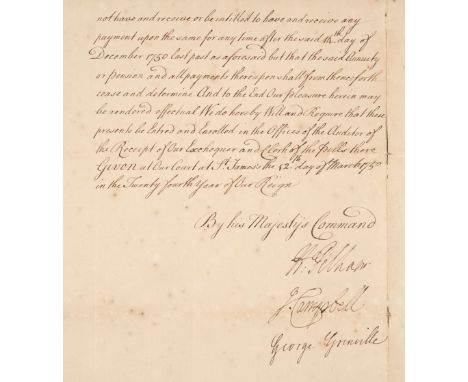 not have and receive or be intitled to have and receive any
payment upon the same for any time after the said 14th day of
December 1750 last past as aforesaid but that the said Annuity
or Pension and all payments thereupon shall from thenceforth
cease and determine And to the End Our Pleasure herein may
be rendered effectual We do hereby Will and Require that these
presents be Entred and Enrolled in the Offices of the Auditor of
the Receipt of Our Exchequer and Clerk of the Pells there
Given at Our Court at St. James's the 12th day of March 1750
in the Twenty fourth Year of Our Reign
By his Majestys Command
H: Pelham
J: Campbell
George Grenville